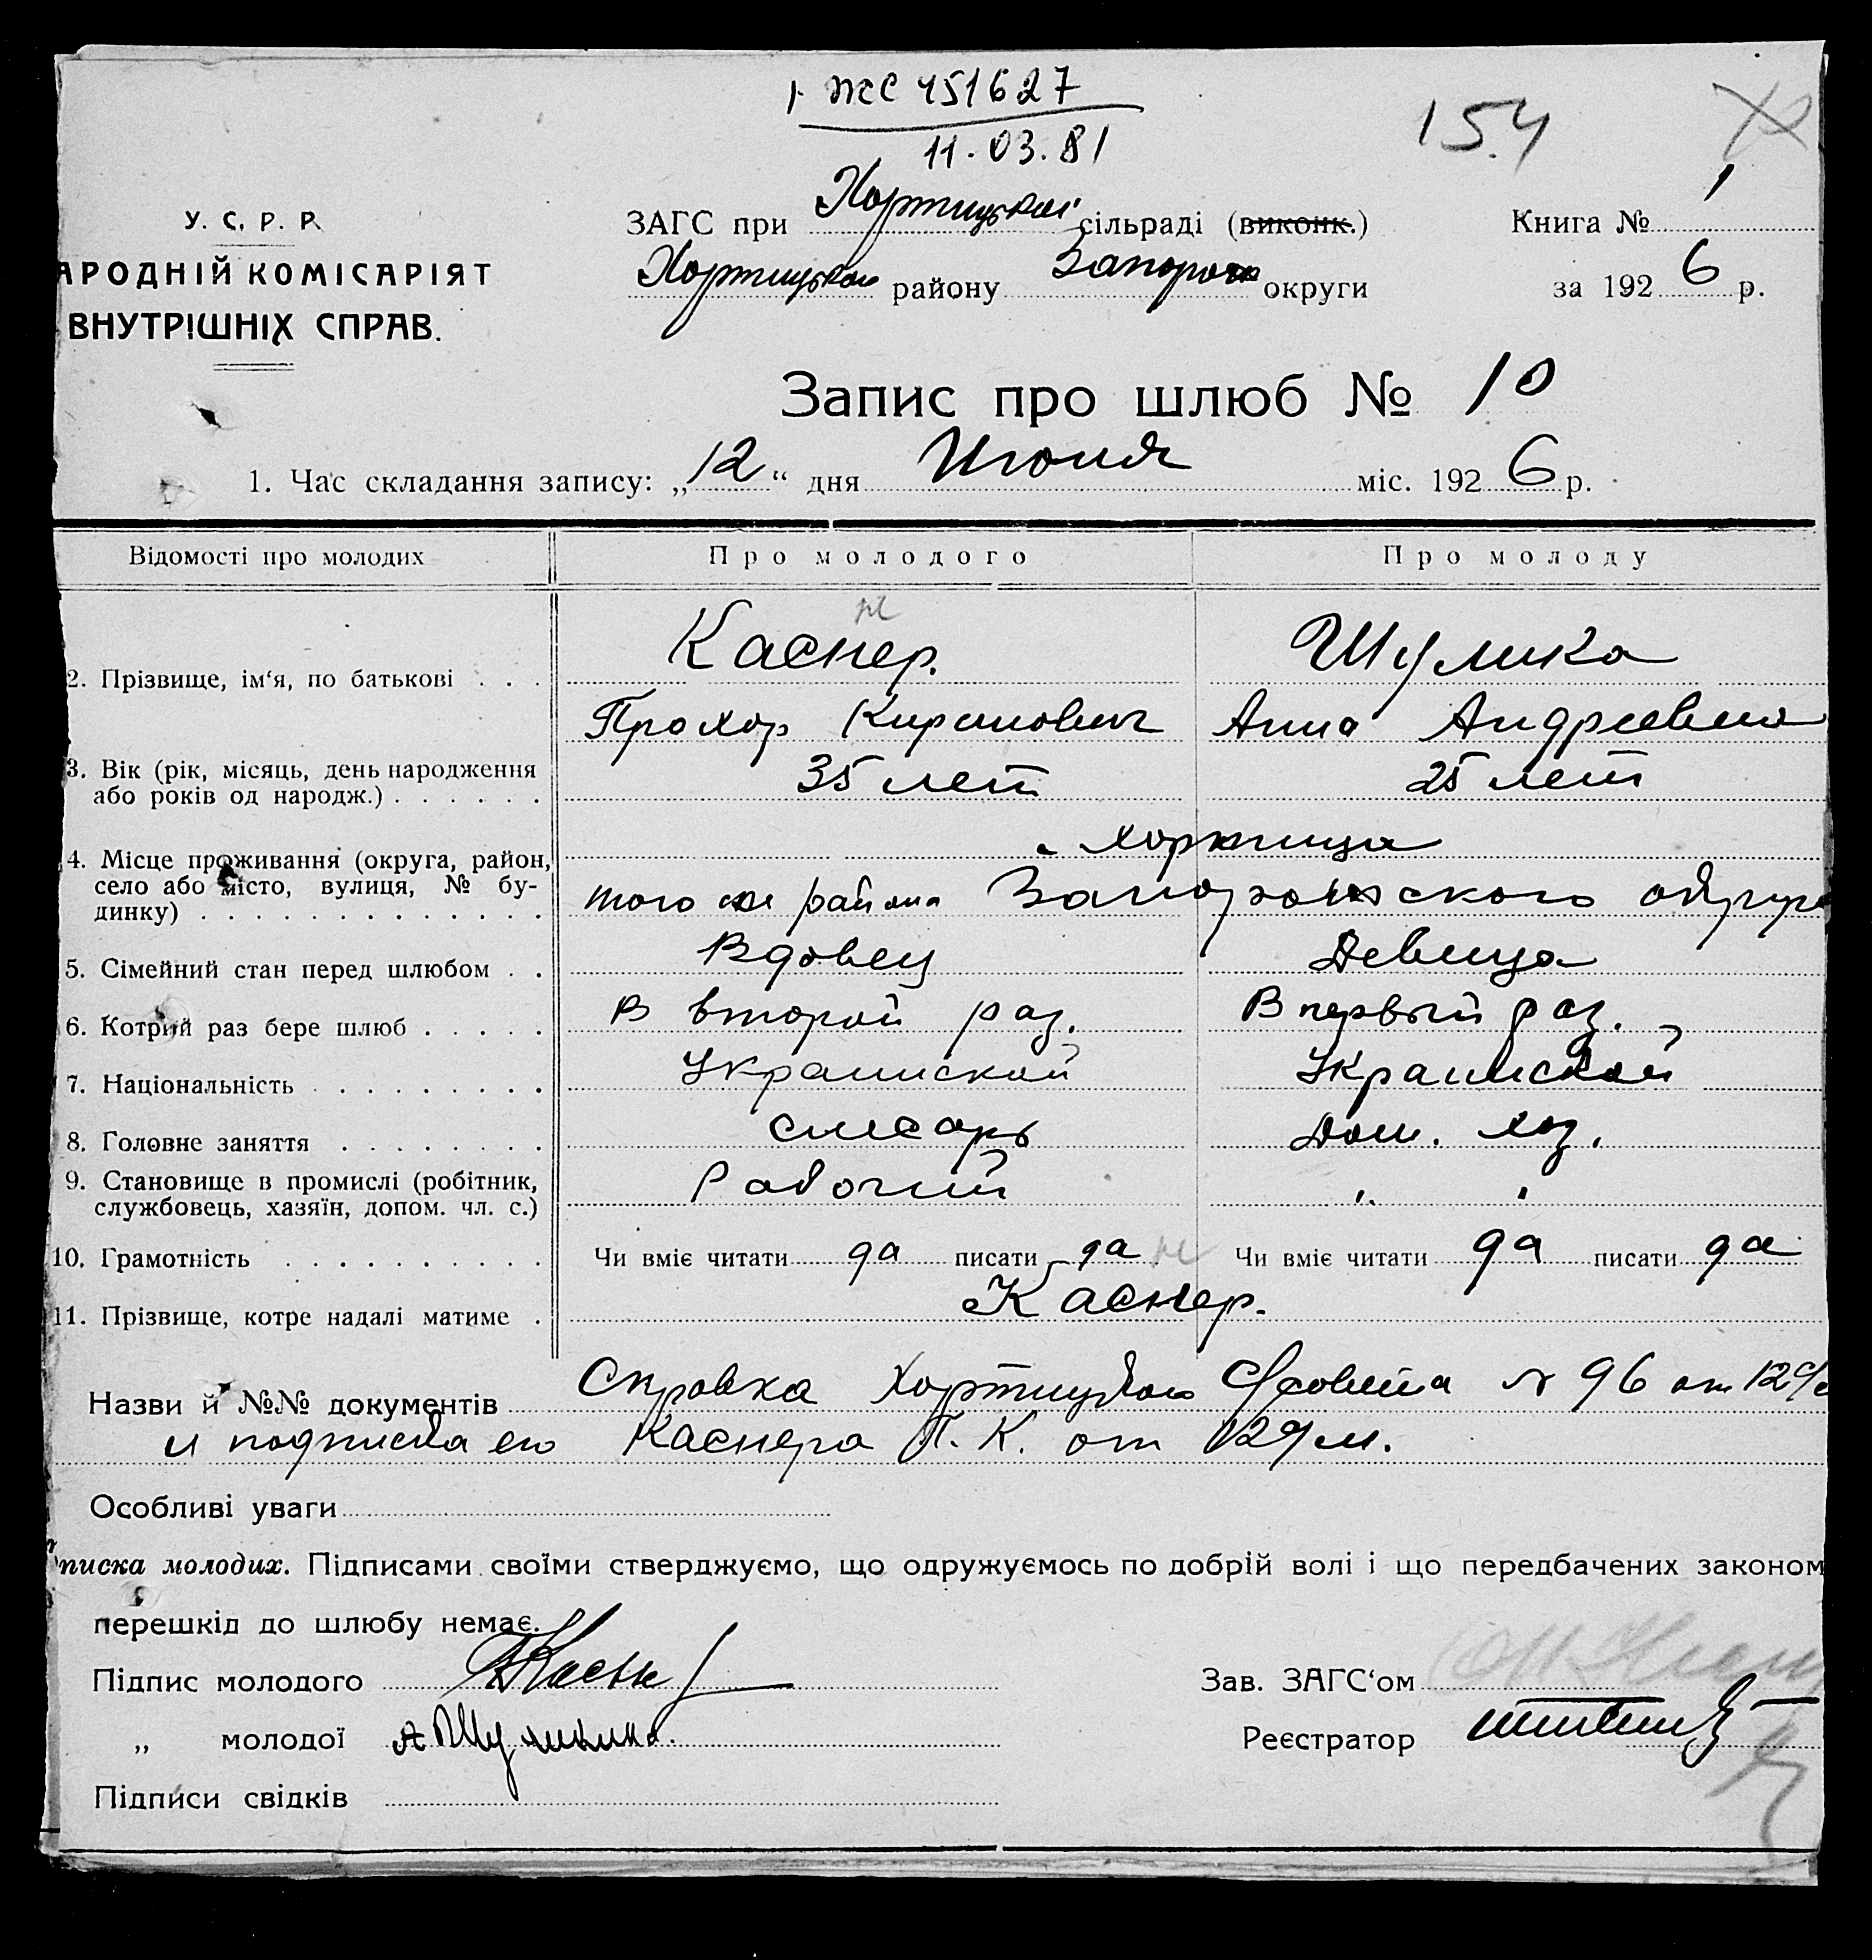 I ЖС 451627
11.03.81
154
У. С. Р. Р.
АРОДНІЙ КОМІСАРІЯТ
ВНУТРІШНІХ СПРАВ.
ЗАГС при Хортицькой сільраді (виконк.)
Хортицького району Запорож округи
Книга № 1
за 1926 р.
Запис про шлюб № 10
1. Час складання запису: „12“ дня Июня міс. 1926 р.
Відомості про молодих Про молодого Про молоду
2. Прізвище, ім‘я, по батькові . . . Каснер. Шулика
Прохор Анна Андреевна
3. Вік (рік, місяць, день народження або років од народж.) . . . . . . 35 лет 25 лет
4. Місце проживання (округа, район, село або місто, вулиця, № будинку) . . . . . . . . . . . . .
с Хортица
того же района Запорожского округа
5. Сімейний стан перед шлюбом . . Вдовец Девица
6. Котрий раз бере шлюб . . . . . В второй раз. В первый раз.
7. Національність . . . . . . . . . Украинской Украинской
8. Головне заняття . . . . . . . . слесарь Дом. хоз.
9. Становище в промислі (робітник, службовець, хазяїн, допом. чл. с.) Рабочий „ „
10. Грамотність . . . . . . . . . . Чи вміє читати да писати да Чи вміє читати да писати да
11. Прізвище, котре надалі матиме . Каснер.
Назви й №№ документів Справка Хортицкого С/совета № 96 от 12
и подписка его Каснера П. К. от 12/ м.
Особливі уваги
писка молодих. Підписами своїми стверджуємо, що одружуємось по добрій волі і що передбачених законом
перешкід до шлюбу немає.
Підпис молодого
„ молодої
Підписи свідків
Зав. ЗАГС‘ом
Реєстратор